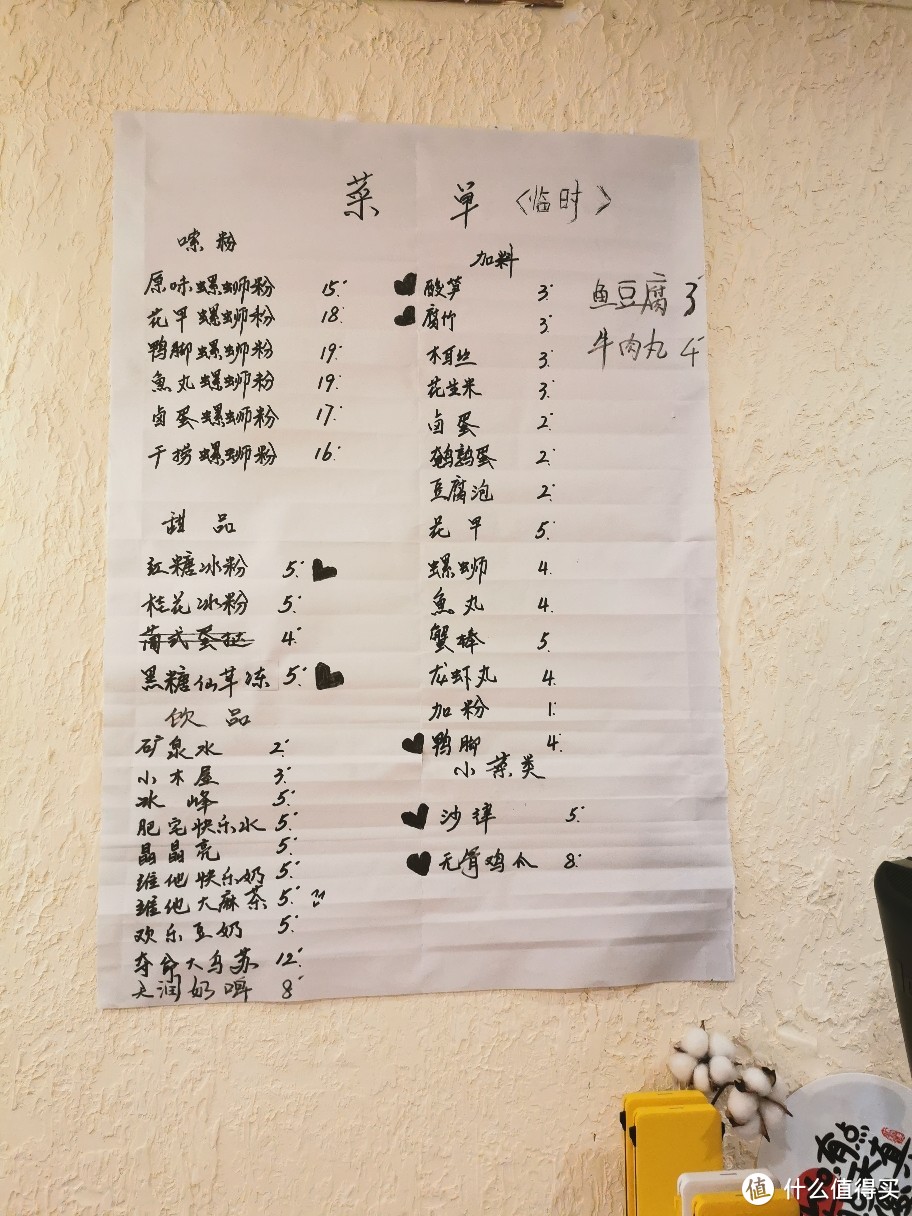 菜 单 〈临时〉
嗦粉
原味螺蛳粉 15.
花甲螺蛳粉 18.
鸭脚螺蛳粉 19.
魚丸螺蛳粉 19.
卤蛋螺蛳粉 17.
干捞螺蛳粉 16.
甜品
红糖冰粉 5.
桂花冰粉 5.
葡式蛋挞 4.
黑糖仙草冻 5.
饮品
矿泉水 2.
小木屋 3.
冰峰 5.
肥宅快乐水 5.
晶晶亮 5.
维他快乐奶 5.
维他大麻茶 5.
欢乐豆奶 5.
夺命大乌苏 12.
天润奶啤 8.
加料
酸笋 3.
腐竹 3.
木耳丝 3.
花生米 3.
卤蛋 2.
鹌鹑蛋 2.
豆腐泡 2.
花甲 5.
螺蛳 4.
魚丸 4.
蟹棒 5.
龙虾丸 4.
加粉 1.
鸭脚 4.
小菜类
沙拌 5.
无骨鸡爪 8.
鱼豆腐 3
牛肉丸 4
有点
值 什么值得买